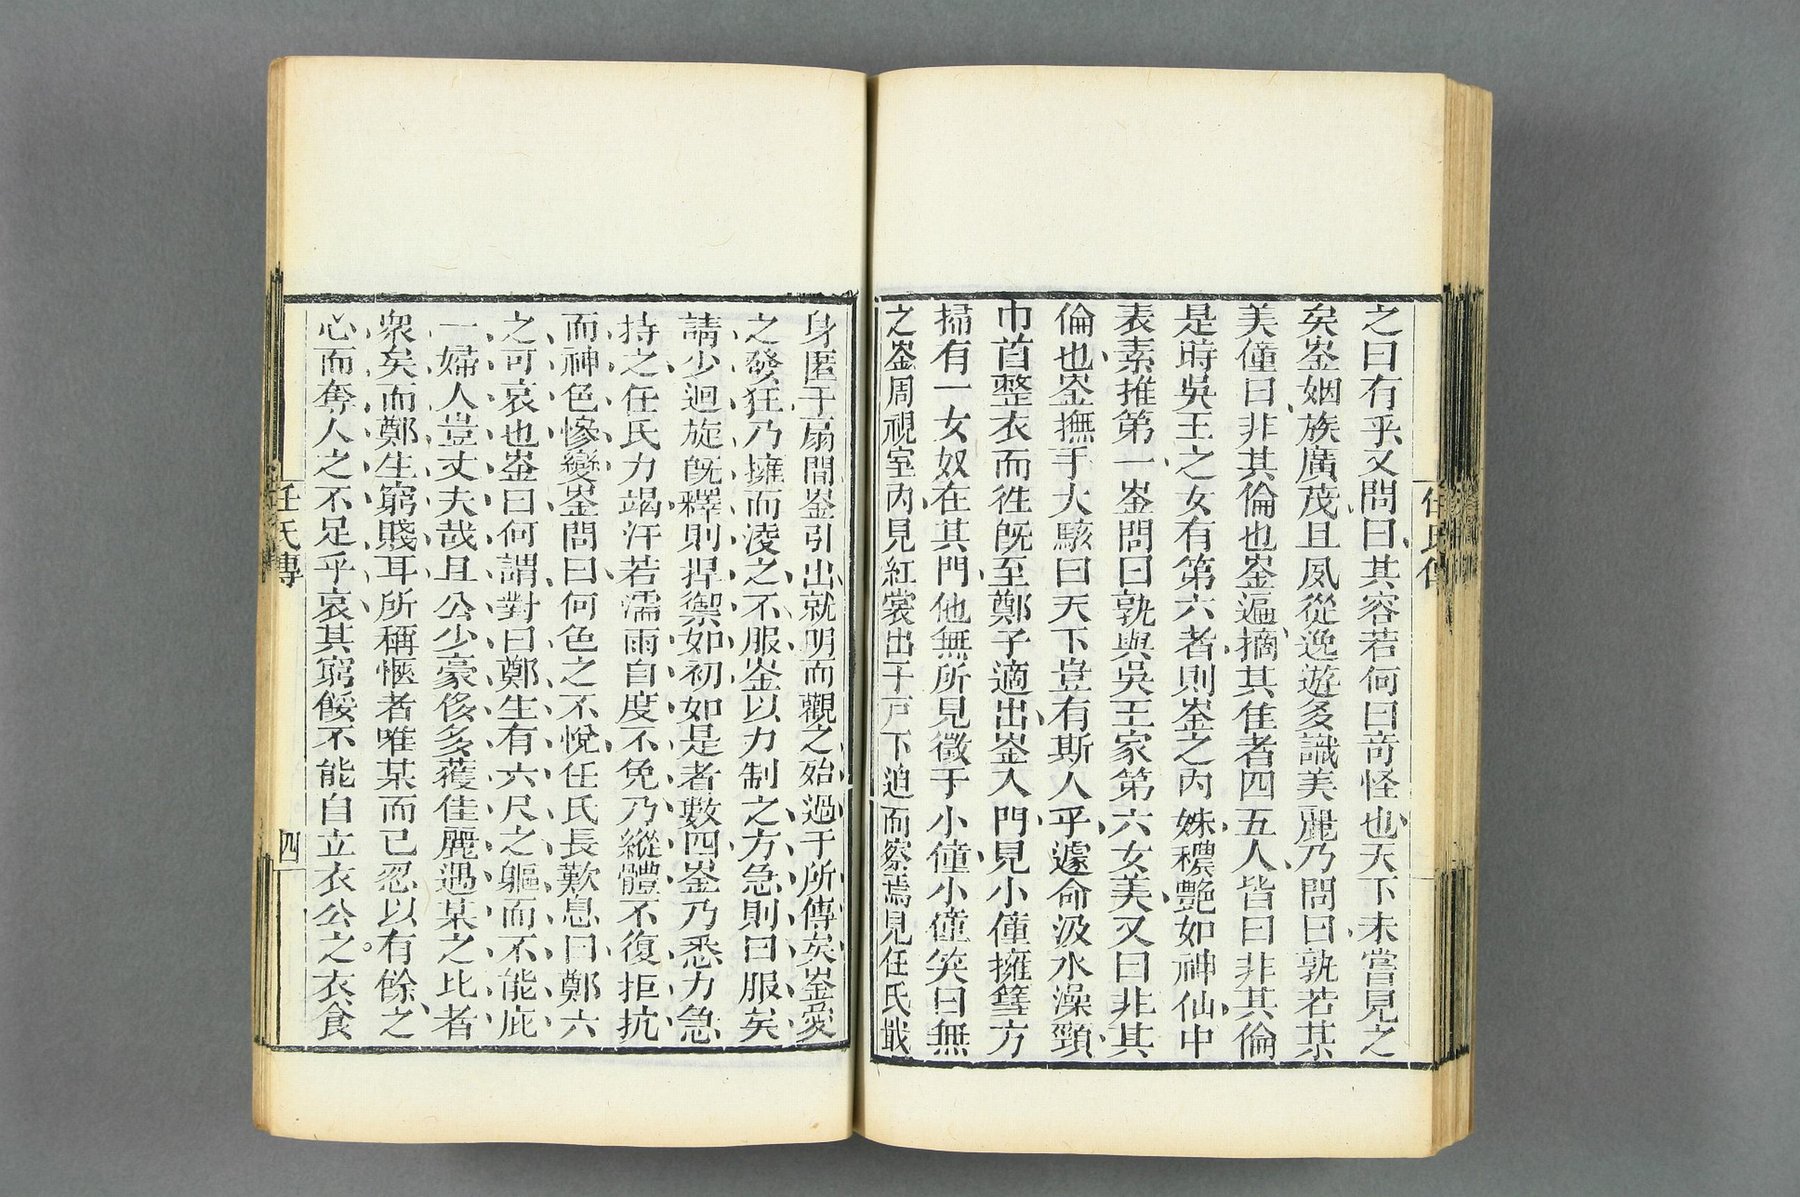 之曰有乎又問曰其容若何曰奇怪也天下未嘗見之
矣崟姻族廣茂且夙從逸遊多識美麗乃問曰孰若某
美僮曰非其倫也崟遍摘其佳者四五人皆曰非其倫
是時吳王之女有第六者則崟之內妹穠艷如神仙中
表素推第一崟問曰孰與吳王家第六女美又曰非其
倫也崟撫手大駭曰天下豈有斯人乎遽命汲水澡頸
巾首整衣而徃旣至鄭子適出崟入門見小僮擁篲方
掃有一女奴在其門他無所見徵于小僮小僮笑曰無
之崟周視室內見紅裳出于戶下迫而察焉見任氏戢
身匿于扇間崟引出就明而觀之殆過于所傳矣崟愛
之發狂乃擁而凌之不服崟以力制之方急則曰服矣
請少迴旋旣釋則捍禦如初如是者數四崟乃悉力急
持之任氏力竭汗若濡雨自度不免乃縱體不復拒抗
而神色慘變崟問曰何色之不悅任氏長歎息曰鄭六
之可哀也崟曰何謂對曰鄭生有六尺之軀而不能庇
一婦人豈丈夫哉且公少豪侈多獲佳麗遇某之比者
衆矣而鄭生窮賤耳所稱愜者唯某而已忍以有餘之
心而奪人之不足乎哀其窮餒不能自立衣公之衣食
任氏傳
四